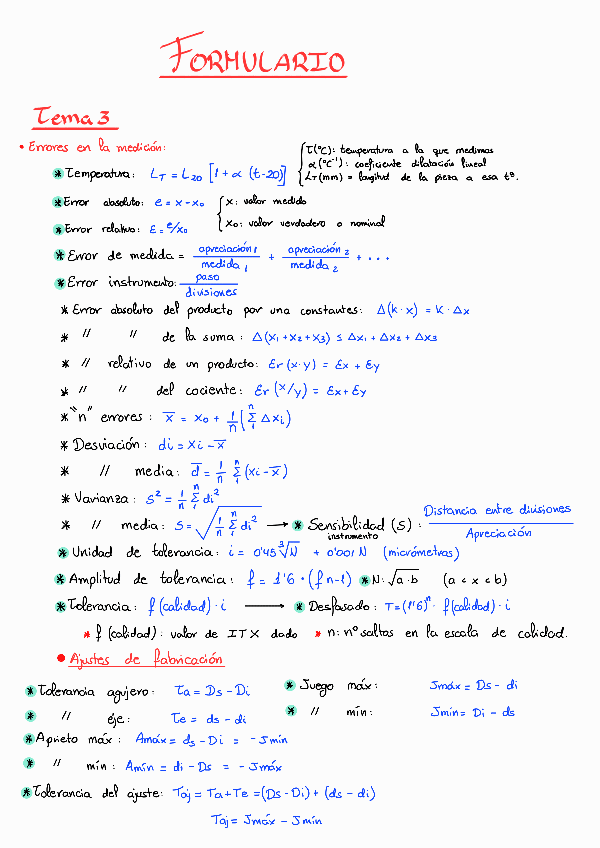 FORMULARIO
Tema 3
• Errores en la medición:
* Temperatura: L_T = L_20 [1 + α (t-20)]
T(°C): temperatura a la que medimos
α(°C⁻¹): coeficiente dilatación lineal
L_T(mm) = longitud de la pieza a esa tª.
* Error absoluto: e = x - x₀
x: valor medido
* Error relativo: ε = e/x₀
x₀: valor verdadero o nominal
* Error de medida = apreciación 1 / medida 1 + apreciación 2 / medida 2 + ...
* Error instrumento: paso / divisiones
* Error absoluto del producto por una constantes: Δ(k·x) = K·Δx
* // // de la suma: Δ(x₁+x₂+x₃) ≤ Δx₁ + Δx₂ + Δx₃
* // relativo de un producto: Er(x·y) = Ex + Ey
* // // del cociente: Er(x/y) = Ex + Ey
* "n" errores: x̄ = x₀ + 1/n (Σⁿ₁ Δxi)
* Desviación: di = xi - x̄
* // media: d̄ = 1/n Σⁿ₁ (xi - x̄)
* Varianza: S² = 1/n Σⁿ₁ di²
* // media: S = √(1/n Σⁿ₁ di²) → * Sensibilidad (S): Distancia entre divisiones / Apreciación
instrumento
* Unidad de tolerancia: i = 0'45 ∛N + 0'001 N (micrómetros)
* Amplitud de tolerancia: f = 1'6 · (f n-1) * N: √a·b (a < x < b)
* Tolerancia: f(calidad) · i → * Desfasado: T = (1'6)ⁿ · f(calidad) · i
* f (calidad): valor de ITX dado * n: nº saltos en la escala de calidad.
• Ajustes de fabricación
* Tolerancia agujero: Ta = Ds - Di
* Juego máx: Jmáx = Ds - di
* // eje: Te = ds - di
* // mín: Jmín = Di - ds
* Aprieto máx: Amáx = ds - Di = - Jmín
* // mín: Amín = di - Ds = - Jmáx
* Tolerancia del ajuste: Taj = Ta + Te = (Ds - Di) + (ds - di)
Taj = Jmáx - Jmín